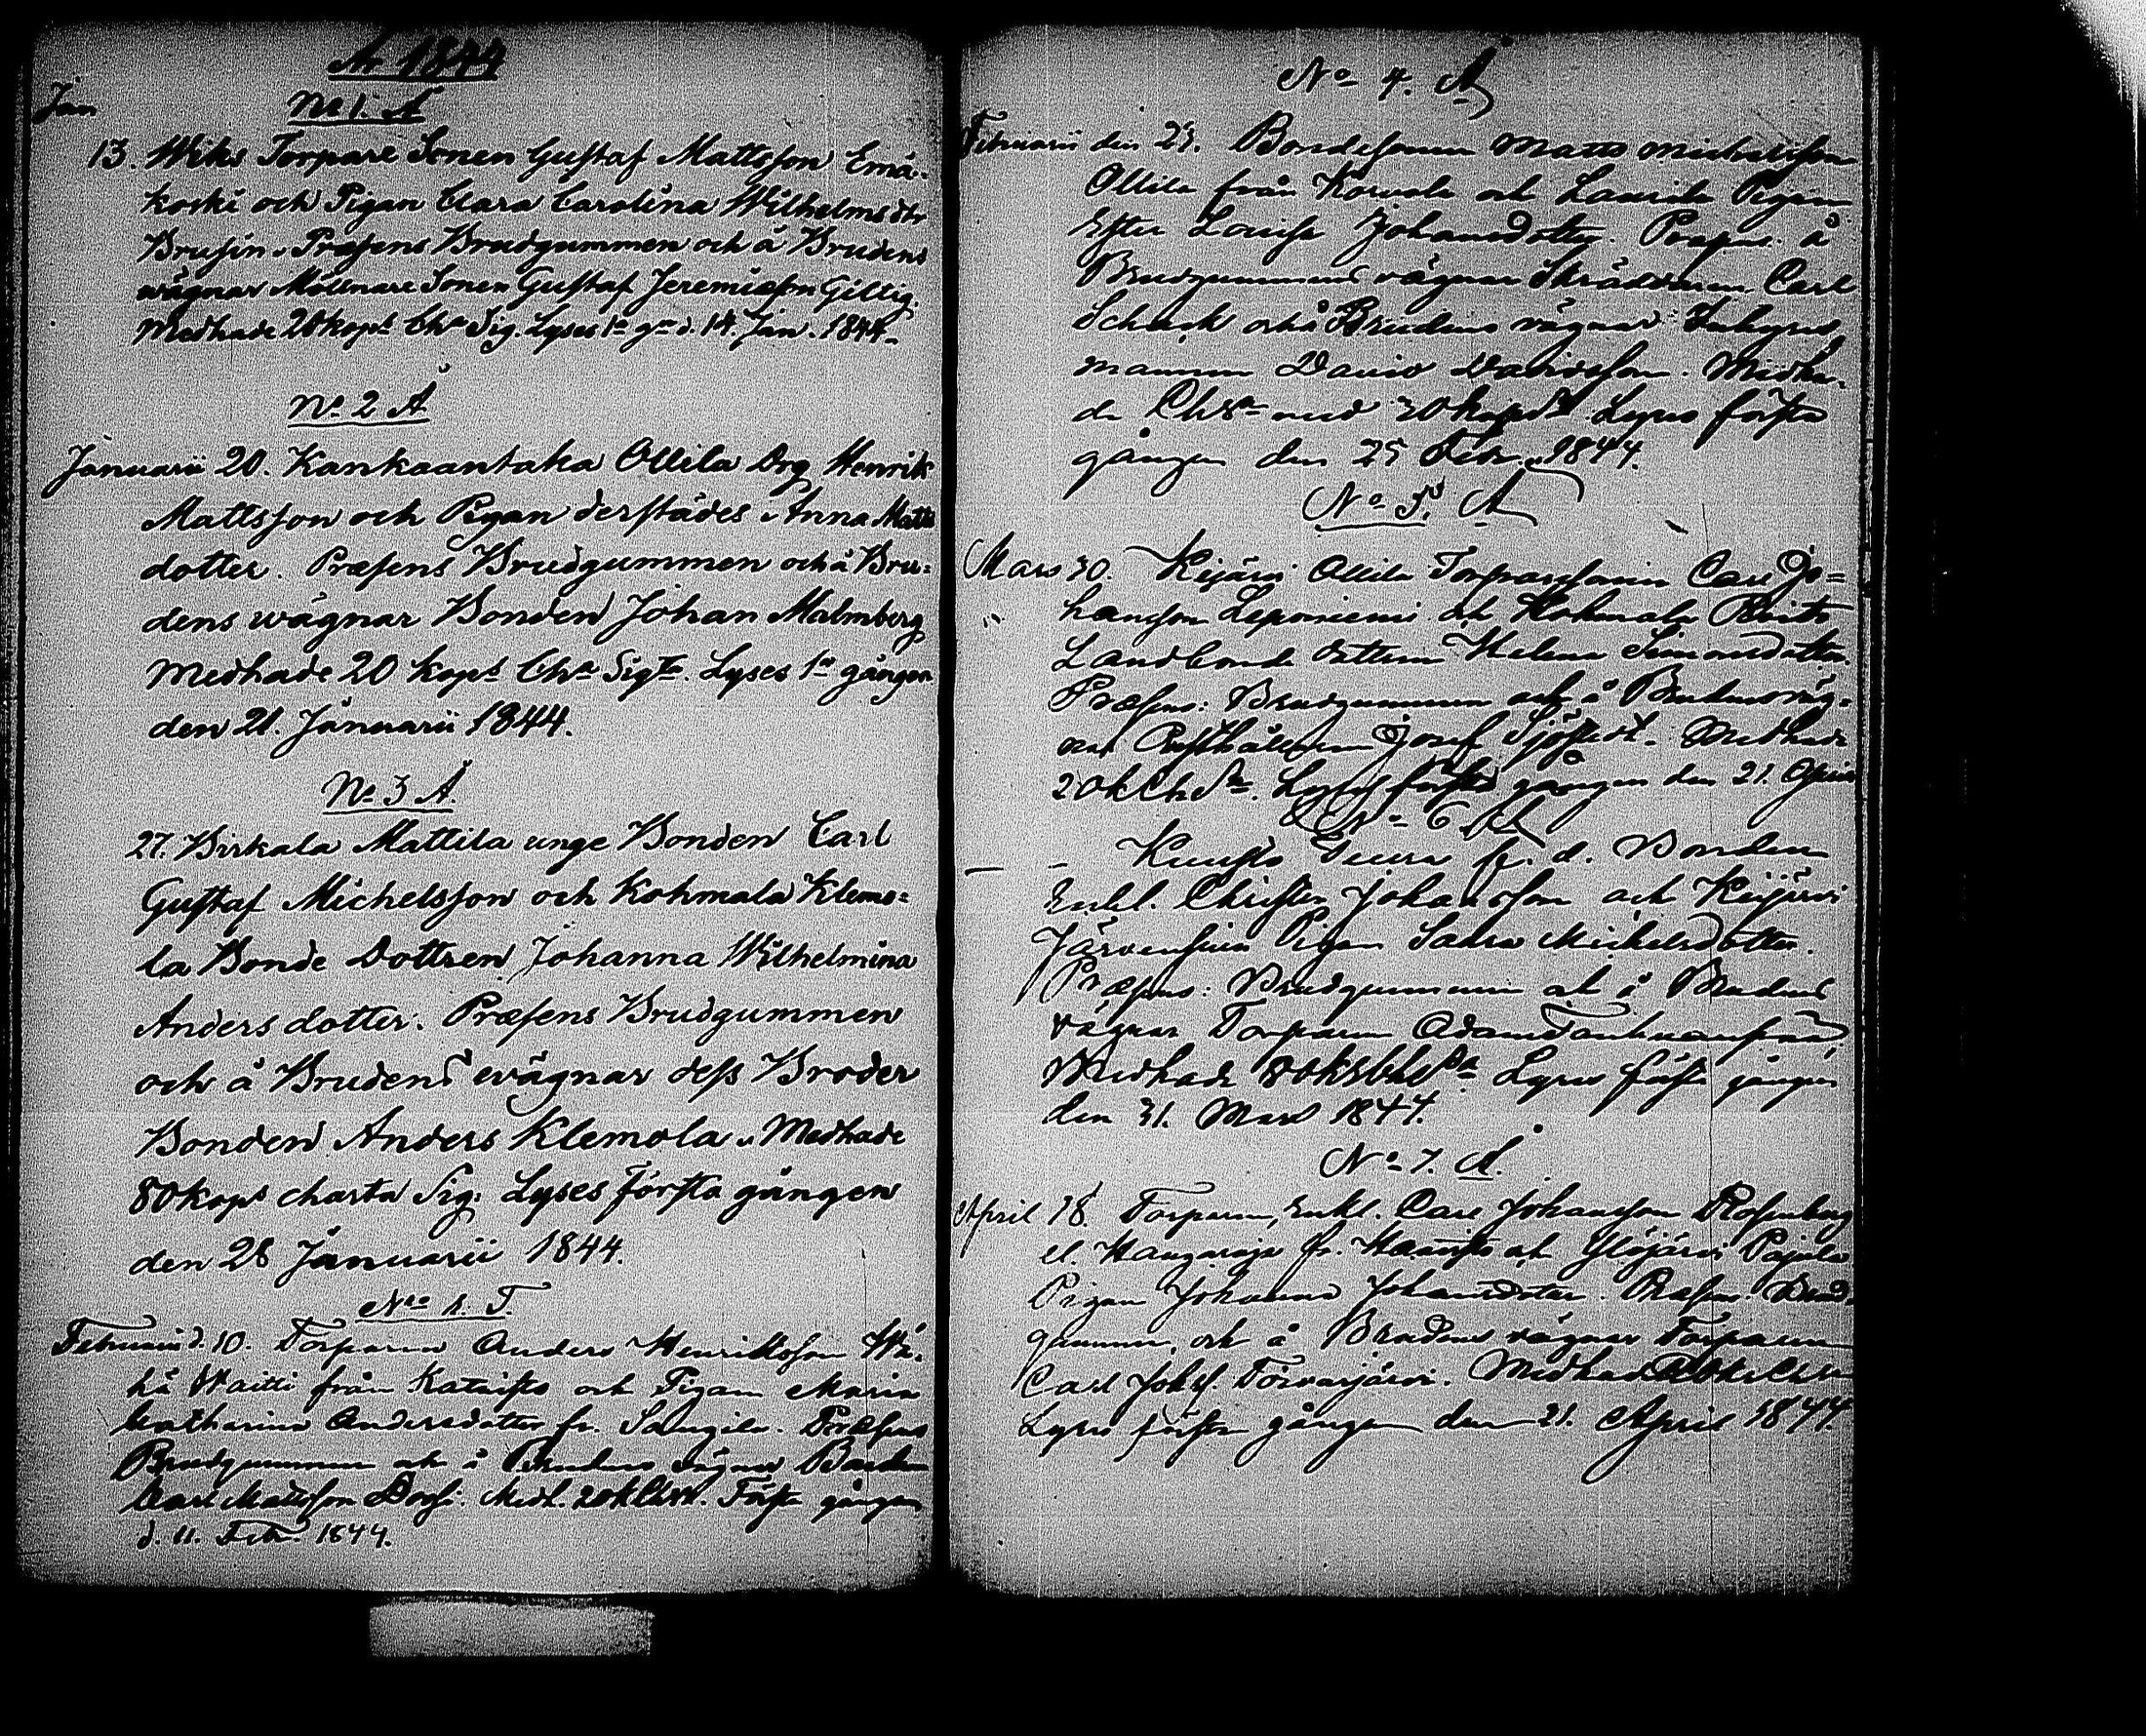 A. 1844
Jan
No 1. Å
13. Wiks Torpare Sonen Gustaf Mattsson Emä-
koski och Pigan Clara Carolina Wilhelms dtr
Brusin. Præsens Brudgummen och å Brudens
wägnar Mölnare Sonen Gustaf Jeremiasson Gillig.
Medhade 20 kops Cha Sig. Lyses 1a gn d. 14. Jan. 1844.
No 2 Å
Januarii 20. Kankaantaka Ollila Drg Henrik
Mattsson och Pigan derstädes Anna Matts
dotter. Præsens Brudgummen och å Bru=
dens wägnar Bonden Johan Malmberg
Medhade 20 kops Cha Sigta. Lyses 1a gången
den 21. Januarii 1844.
No 3 Å.
27. Birkala Mattila unge Bonden Carl
Gustaf Michelsson och Kohmala Klemo=
la Bonde Dottren Johanna Wilhelmina
Anders dotter. Præsens Brudgummen
och å Brudens wägnar dess Broder
Bonden Anders Klemola. Medhade
80 kops charta Sig. Lyses Första gången
den 28 Januarii 1844.
Nro 1. T.
Februarii d. 10. Torparen Anders Henriksson
Waitti från Kataisto och Pigan Maria
Catharina Andersdotter fr. Præsens
Brudgummen och å Brudens wägnar
Carl Mattsson Medh. 20 k Första gången
d. 11. Feb. 1844.
No 4. Å
Februarii den 23. Bondesonen Matts Michelsson
Ollila från och Laurila Pigan
Ester Lovisa Johansdotter. Præsens å
Brudgummens vägnar Skräddaren Carl
Schack och å Brudens vägnar Inhyses
mannen David Davidsson. Medha-
de Ch Sa med 30 kop. Lyses första
gången den 25 Feb. 1844.
No 5. Å
Mars 30. Keijärvi Ollila Torparesonen Carl Jo=
hansson Leponiemi och Kohmala
Landbonde dottren Helena Simonsdotter.
Præsens: Brudgummen och å Brudens väg=
nar Rusthållaren Josef Sjöstedt. Medhade
20 k Ch Sa. Lyses första gången den 21. April
No 6 Å
fr. d. Bonden
Enkl. Christer Johansson och Keijärvi
Pigan Michelsdotter.
Præsens: Brudgummen och å Brudens
vägnar Torparen Adam
Medhade Lyses första gången
den 31. Mars 1844.
No 7. Å.
April 18. Torparen, Enkl. Carl Johansson Rosenberg
el. fr. och Ylöjärvi Pajula
Pigan Johanna Johansdotter. Præsens. Brud-
gummen, och å Brudens vägnar Torparen
Carl Johss. Medhade
Lyses första gången den 21. April 1844.